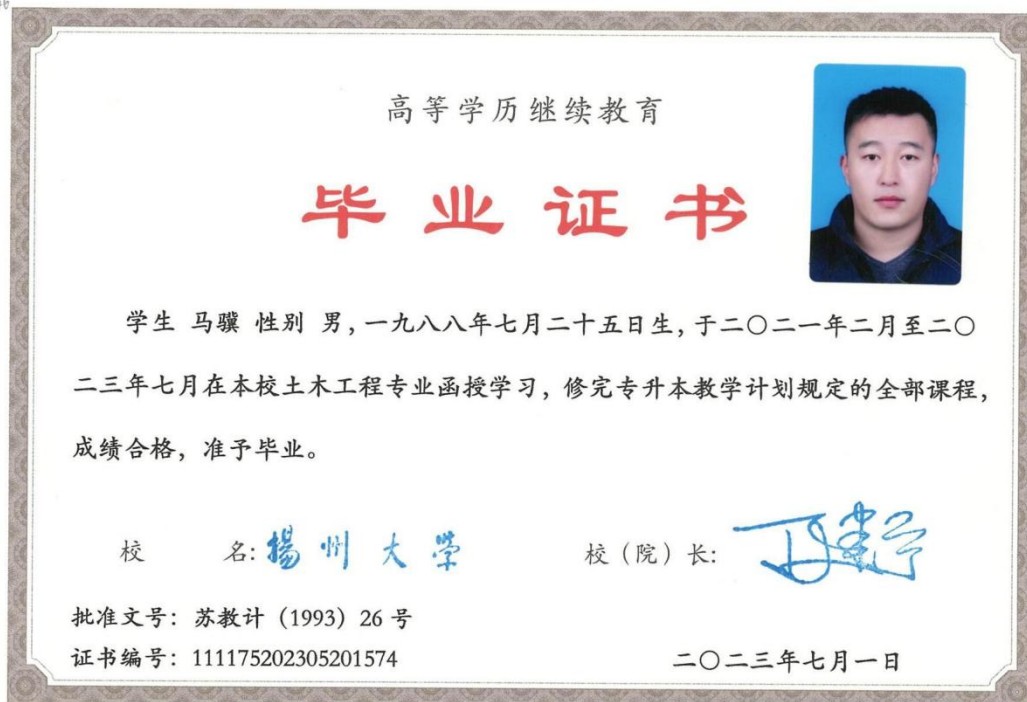 高等学历继续教育
毕业证书
学生 马骥 性别 男,一九八八年七月二十五日生,于二〇二一年二月至二〇
二三年七月在本校土木工程专业函授学习,修完专升本教学计划规定的全部课程,
成绩合格,准予毕业。
校 名:揚州大學 校(院)长:
批准文号:苏教计(1993)26号
证书编号:111175202305201574 二〇二三年七月一日